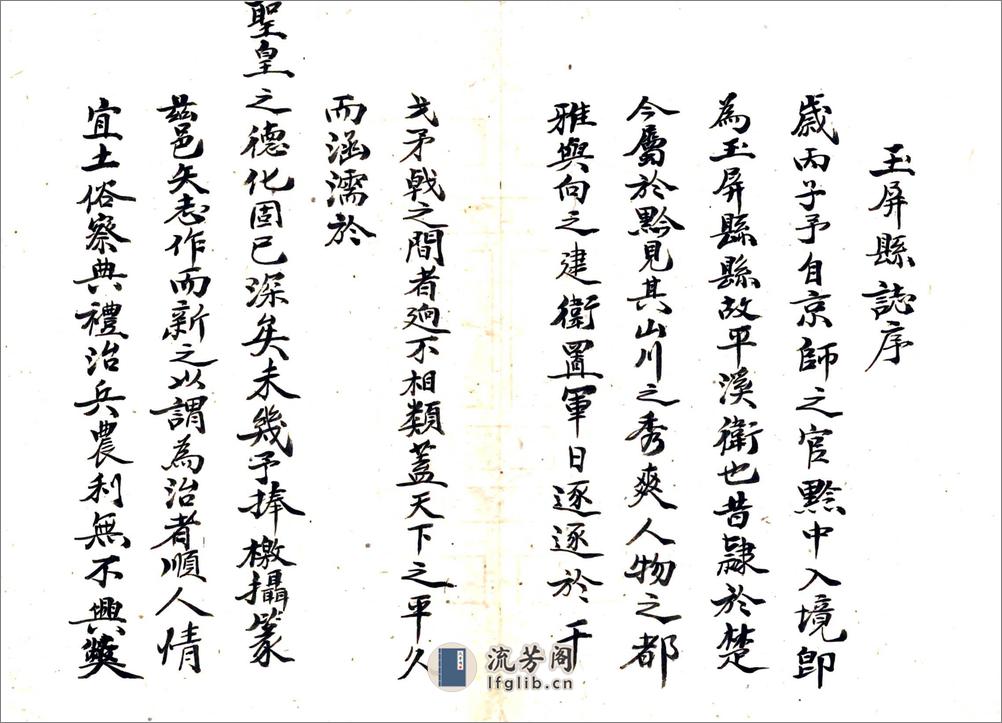 玉屏縣誌序
歲丙子予自京師之官黔中入境卽
為玉屏縣縣故平溪衛也昔隸於楚
今屬於黔見其山川之秀爽人物之都
雅與向之建衛置軍日逐逐於干
戈矛戟之間者迥不相類蓋天下之平久
而涵濡於
聖皇之德化固已深矣未幾予捧檄攝篆
茲邑矢志作而新之以謂為治者順人情
宜土俗察典禮治兵農利無不興獘
流芳阁
lfglib.cn